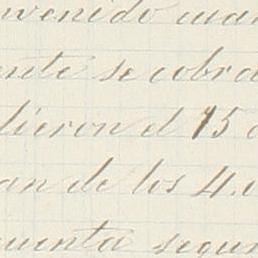 venido
ente se cobra
dieron el 15
an de los 4.0
uenta segun